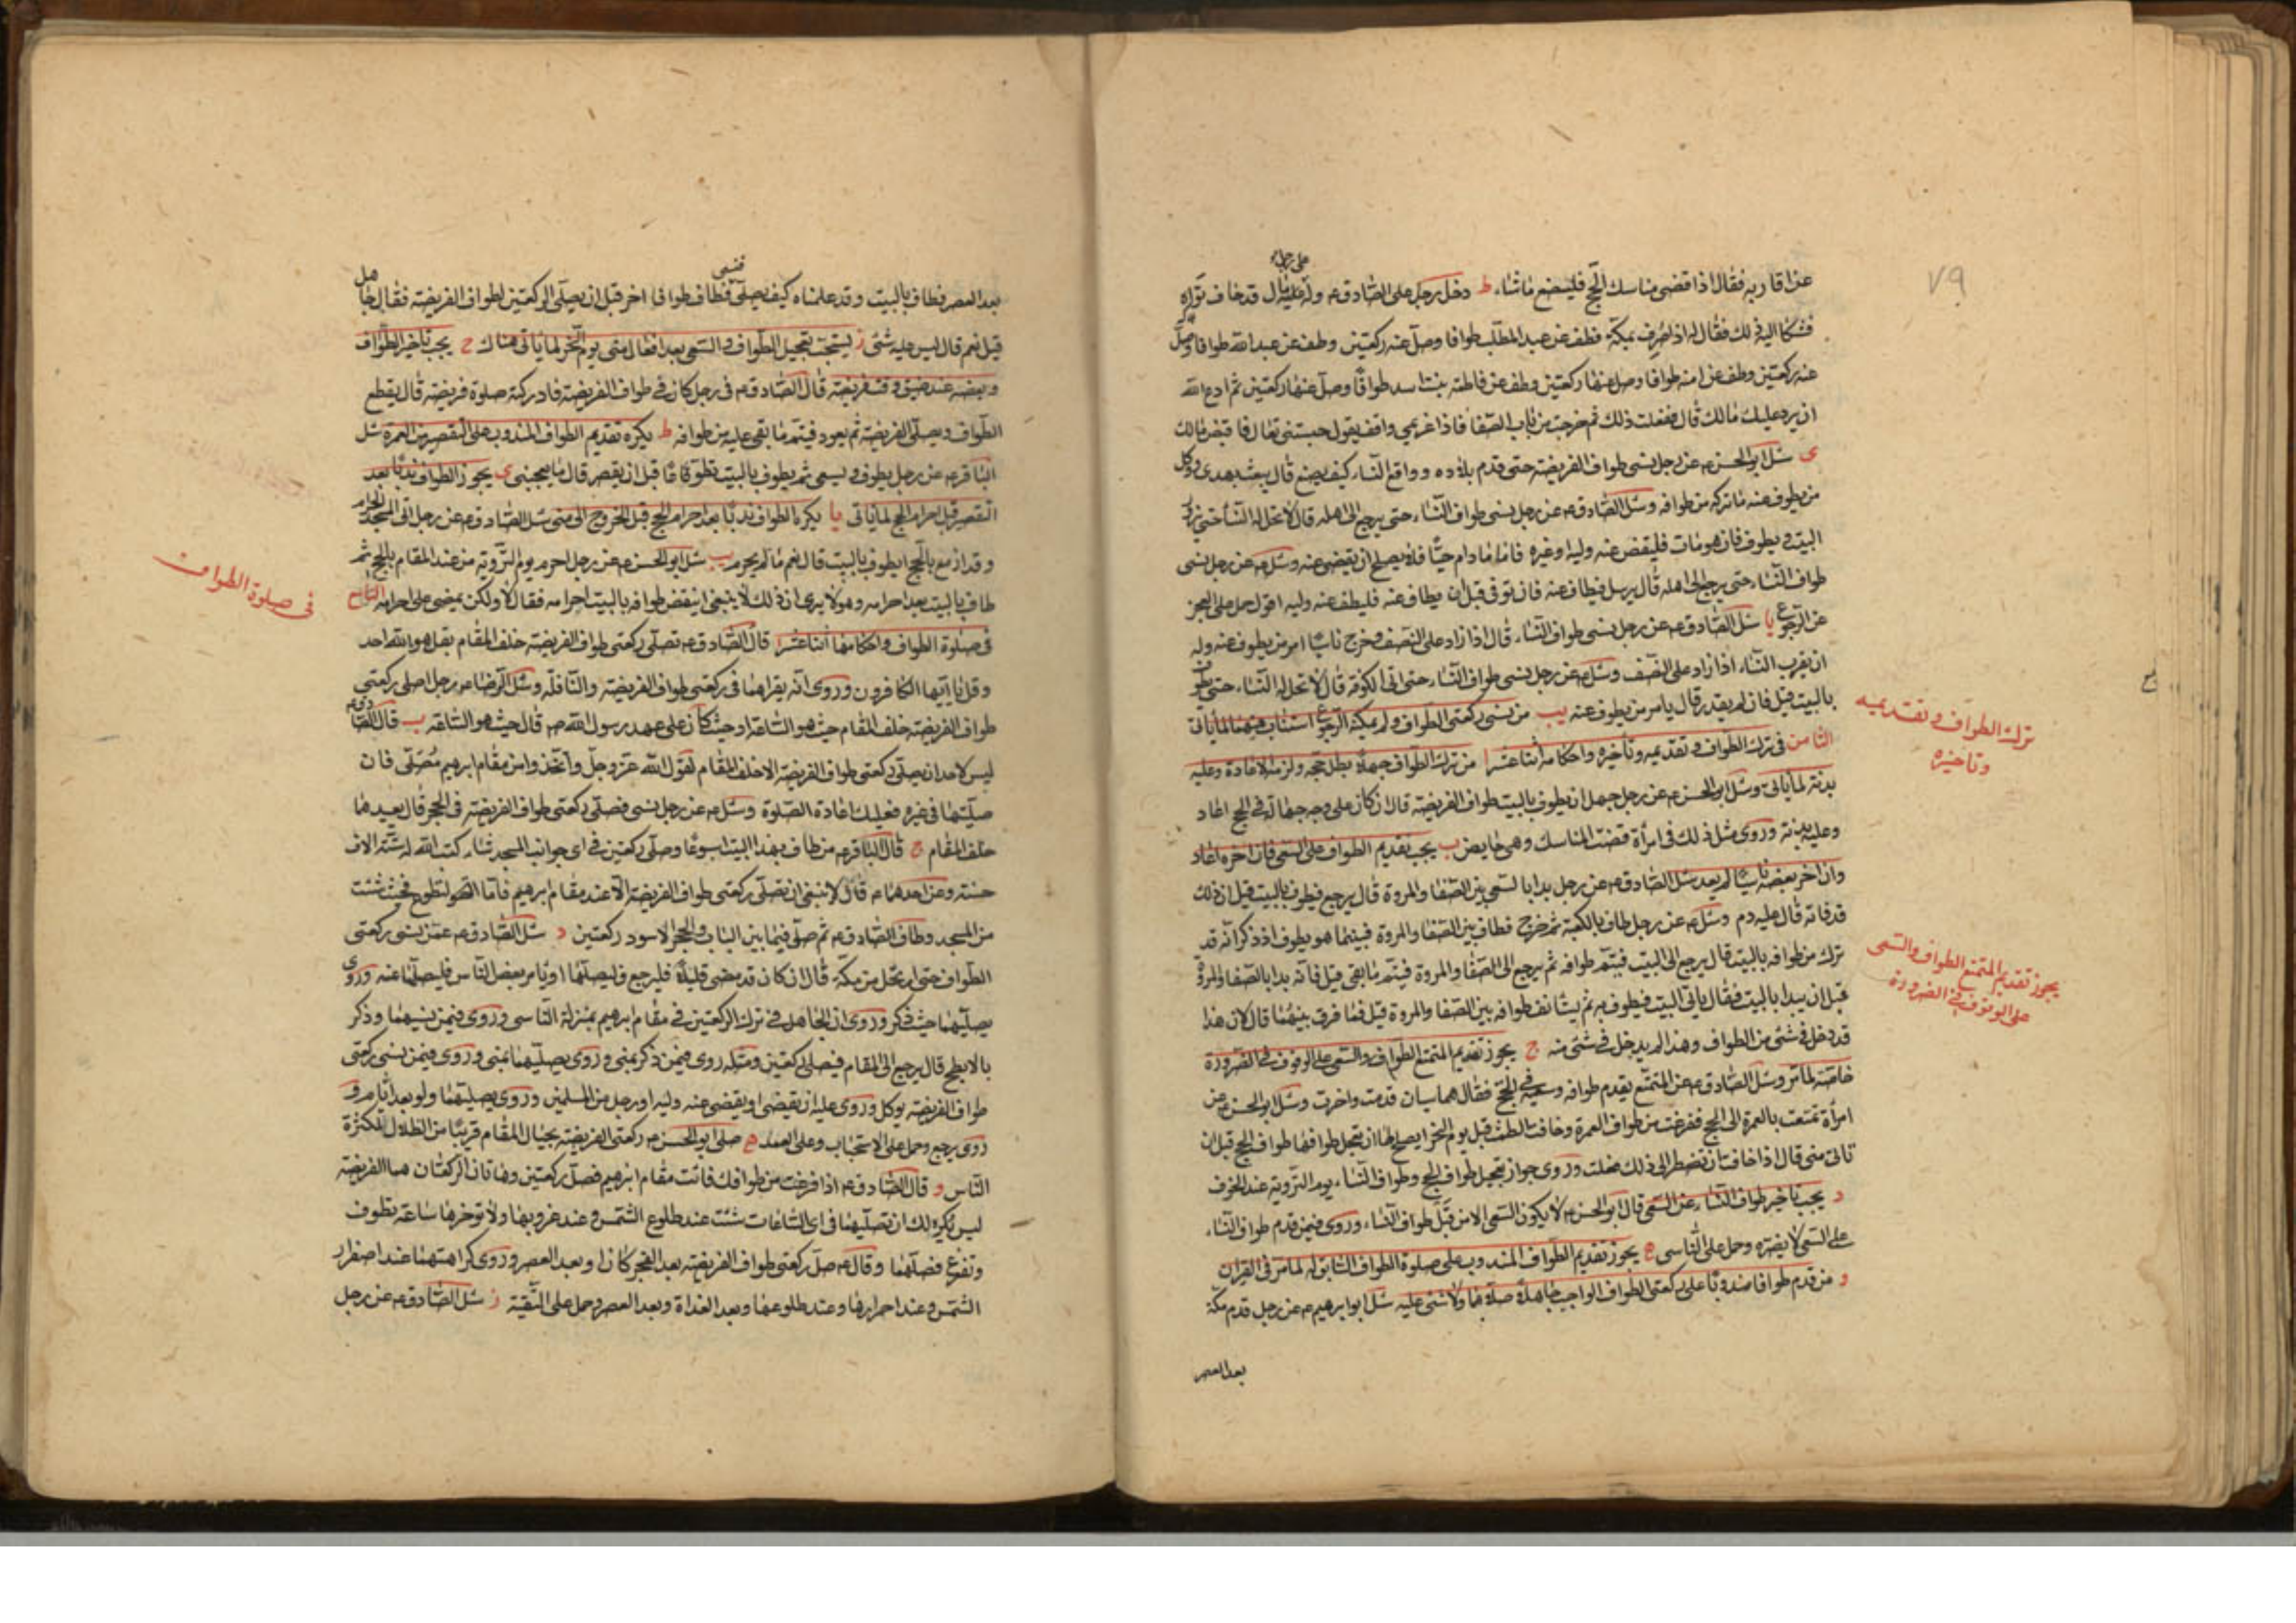 ٧٩
عن اقاربه فقال اذا قضى مناسك الحج فليصنع ما شاء ط دخل رجل على الصادق م وله على رجل مال قد خاف تواه
فشكا اليه ذلك فقال له اذا صرت بمكة فطف عن عبد المطلب طوافا وصل عنه ركعتين وطف عن عبد الله طوافا وصل
عنه ركعتين وطف عن امنه طوافا وصل عنها ركعتين وطف عن فاطمة بنت اسد طوافا وصل عنها ركعتين ثم ادع الله
ان يرد عليك مالك قال ففعلت ذلك ثم خرجت من باب الصفا فاذا غريمي واقف يقول حبستني تعال فاقبض مالك
ى سئل ابو الحسن م عن رجل نسى طواف الفريضة حتى قدم بلاده وواقع النساء كيف يصنع قال يبعث بهدى ووكل
من يطوف عنه ما تركه من طوافه وسئل الصادق م عن رجل نسى طواف النساء حتى يرجع الى اهله قال لا تحل له النساء حتى يزور
البيت ويطوف فان هو مات فليقض عنه وليه او غيره فاما ما دام حيا فلا يصلح ان يقضى عنه وسئل م عن رجل نسى
طواف النساء حتى يرجع الى اهله قال يرسل فيطاف عنه فان توفى قبل ان يطاف عنه فليطف عنه وليه اقول حمل على العجز
عن الرجوع يا سئل الصادق م عن رجل نسى طواف النساء قال اذا زاد على النصف وخرج ناسيا امر من يطوف عنه وله
ان يقرب النساء اذا زاد على النصف وسئل م عن رجل نسى طواف النساء حتى اتى الكوفة قال لا تحل له النساء حتى يطوف
بالبيت قيل فان لم يقدر قال يامر من يطوف عنه يب من نسى ركعتى الطواف ولم يمكنه الرجوع استناب فيهما لما ياتى
الثامن فى ترك الطواف وتقديمه وتأخيره واحكامه اثنا عشر ا من ترك الطواف جهلا بطل حجه ولزمه الاعادة وعليه
بدنة لما ياتى وسئل ابو الحسن م عن رجل جهل ان يطوف بالبيت طواف الفريضة قال ان كان على وجه جهالة فى الحج اعاد
وعليه بدنة وروى مثل ذلك فى امرأة قضت المناسك وهى حايض ب يجب تقديم الطواف على السعى فان اخره اعاد
وان اخر بعضه ناسيا لم يعد سئل الصادق م عن رجل بدا بالسعى بين الصفا والمروة قال يرجع فيطوف بالبيت قيل ان ذلك
قد فاته قال عليه دم وسئل م عن رجل طاف بالكعبة ثم خرج فطاف بين الصفا والمروة فبينما هو يطوف اذ ذكر انه قد
ترك من طوافه بالبيت قال يرجع الى البيت فيتم طوافه ثم يرجع الى الصفا والمروة فيتم ما بقى قيل فانه بدا بالصفا والمروة
قبل ان يبدا بالبيت فقال ياتى البيت فيطوف به ثم يستانف طوافه بين الصفا والمروة قيل فما فرق بينهما قال لان هذا
قد دخل فى شئ من الطواف وهذا لم يدخل فى شئ منه ج يجوز تقديم المتمتع الطواف والسعى على الوقوف فى الضرورة
خاصة لما مر وسئل الصادق م عن المتمتع يقدم طوافه وسعيه فى الحج فقال هما سيان قدمت واخرت وسئل ابو الحسن م عن
امرأة تمتعت بالعمرة الى الحج ففرغت من طواف العمرة وخافت الطمث قبل يوم النحر ايصلح لها ان تعجل طوافها طواف الحج قبل ان
تاتى منى قال اذا خافت ان تضطر الى ذلك فعلت وروى جواز تعجيل طواف الحج وطواف النساء يوم التروية عند الخوف
د يجب تاخير طواف النساء عن السعى قال ابو الحسن م لا يكون السعى الا من قبل طواف النساء وروى فيمن قدم طواف النساء
على السعى لا يضره وحمل على الناسى ه يجوز تقديم الطواف المندوب على صلوة الطواف السابق له لما مر فى القران
و من قدم طوافا مندوبا على ركعتى الطواف الواجب جاهلا صلاهما ولا شئ عليه سئل ابو ابرهيم م عن رجل قدم مكة
بعد العصر
ترك الطواف وتقديمه
وتاخيره
يجوز تقديم المتمتع الطواف والسعى
على الوقوف فى الضرورة
بعد العصر فطاف بالبيت وقد علمناه كيف يصلى فنسى فطاف طوافا اخر قبل ان يصلى الركعتين لطواف الفريضة فقال جاهل
قيل نعم قال ليس عليه شئ ز يستحب تعجيل الطواف والسعى بعد افعال منى يوم النحر لما ياتى هناك ح يجب تاخير الطواف
وبعضه عند ضيق وقت فريضة قال الصادق م فى رجل كان فى طواف الفريضة فادركته صلوة فريضة قال يقطع
الطواف ويصلى الفريضة ثم يعود فيتم ما بقى عليه من طوافه ط يكره تقديم الطواف المندوب على التقصير من العمرة سئل
الباقر م عن رجل يطوف ويسعى ثم يطوف بالبيت تطوعا قبل ان يقصر قال ما يعجبنى ى يجوز الطواف ندبا بعد
التقصير قبل احرام الحج لما ياتى يا يكره الطواف ندبا بعد احرام الحج قبل الخروج الى منى سئل الصادق م عن رجل اتى المسجد الحرام
وقد ازمع بالحج ايطوف بالبيت قال نعم ما لم يحرم يب سئل ابو الحسن م عن رجل احرم يوم التروية من عند المقام بالحج ثم
طاف بالبيت بعد احرامه وهو لا يرى ان ذلك لا ينبغى اينقض طوافه بالبيت احرامه فقال لا ولكن يمضى على احرامه التاسع
فى صلوة الطواف واحكامها اثنا عشر ا قال الصادق م تصلى ركعتى طواف الفريضة خلف المقام بقل هو الله احد
وقل يا ايها الكافرون وروى انه يقراهما فى ركعتى طواف الفريضة والنافلة وسئل الرضا م عن رجل اصلى ركعتى
طواف الفريضة خلف المقام حيث هو الساعة او حيث كان على عهد رسول الله ص قال حيث هو الساعة ب قال الصادق م
ليس لاحد ان يصلى ركعتى طواف الفريضة الا خلف المقام لقول الله عز وجل واتخذوا من مقام ابرهيم مصلى فان
صليتهما فى غيره فعليك اعادة الصلوة وسئل م عن رجل نسى فصلى ركعتى طواف الفريضة فى الحجر قال يعيدهما
خلف المقام ج قال الباقر م من طاف بهذا البيت اسبوعا وصلى ركعتين فى اى جوانب المسجد شاء كتب الله له ستة الاف
حسنة وعن احدهما م قال لا ينبغى ان تصلى ركعتى طواف الفريضة الا عند مقام ابرهيم فاما التطوع فحيث شئت
من المسجد وطاف الصادق م ثم صلى فيما بين الباب والحجر الاسود ركعتين د سئل الصادق م عمن نسى ركعتى
الطواف حتى ارتحل من مكة قال ان كان قد مضى قليلا فليرجع فليصلهما او يامر بعض الناس فليصلهما عنه وروى
يصليهما حيث ذكر وروى ان الجاهل فى ترك الركعتين فى مقام ابرهيم بمنزلة الناسى وروى فيمن نسيهما وذكر
بالابطح قال يرجع الى المقام فيصلى ركعتين ومثله روى فيمن ذكر بمنى وروى يصليهما بمنى وروى فيمن نسى ركعتى
طواف الفريضة يوكل وروى عليه ان يقضى او يقضى عنه وليه او رجل من المسلمين وروى يصليهما ولو بعد ايام و
روى يرجع وحمل على الاستحباب وعلى العمد ه صلى ابو الحسن م ركعتى الفريضة بحيال المقام قريبا من الظلال لكثرة
الناس و قال الصادق م اذا فرغت من طوافك فائت مقام ابرهيم فصل ركعتين وهاتان الركعتان هما الفريضة
ليس يكره لك ان تصليهما فى اى الساعات شئت عند طلوع الشمس وعند غروبها ولا توخرها ساعة تطوف
وتفرغ فصلهما وقال م صل ركعتى طواف الفريضة بعد الفجر كان او بعد العصر وروى كراهتهما عند اصفرار
الشمس وعند احمرارها وعند طلوعها وبعد الغداة وبعد العصر وحمل على التقية ز سئل الصادق م عن رجل
فى صلوة الطواف